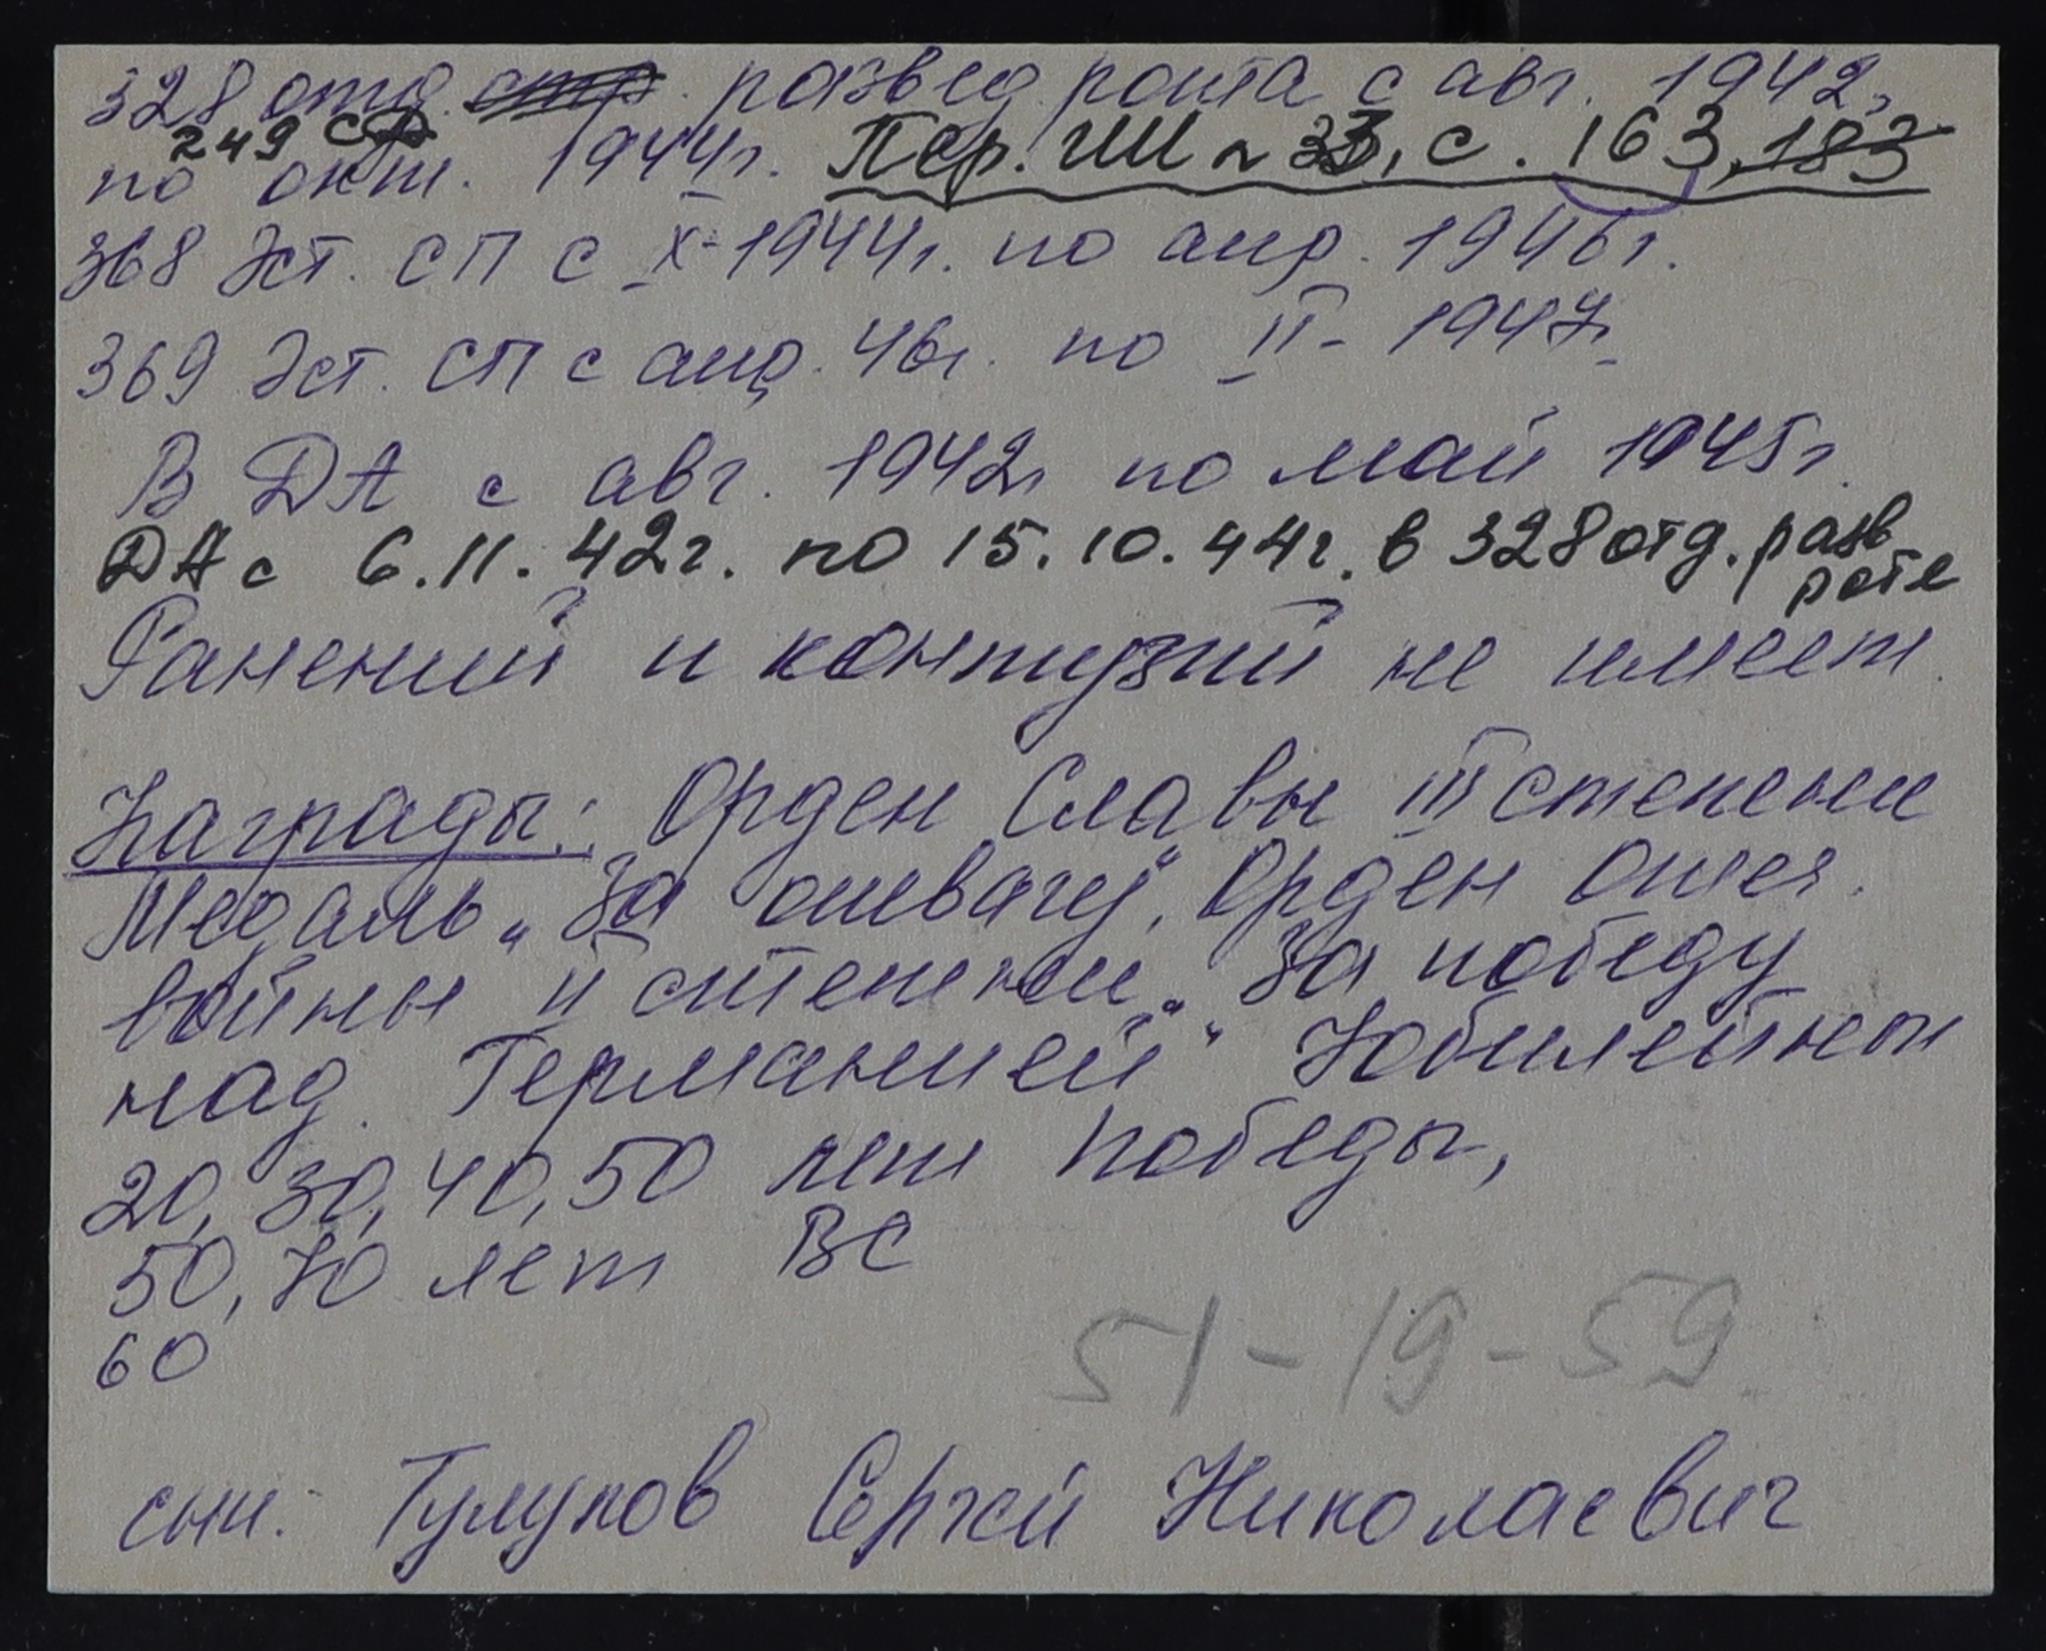 328 отд. стр. развед. рота с авг. 1942г
249 сд
по окт. 1944г. Пер. ГШ № 33, с. 163, 183
368 Эст. СП с X-1944г. по апр. 1946г.
369 Эст. СП с апр. 46г. по II- 1947г.
В ДА с авг. 1942г по май 1945г.
ДА с 6.11.42г. по 15.10.44г. в 328 отд. разв
роте
Ранений и контузий не имеет.
Награды: Орден Славы III степени
Медаль „За отвагу", Орден Отеч.
войны II степени, „За победу
над Германией" Юбилейные
20, 30, 40, 50 лет Победы,
50, 70 лет ВС
60
51-19-59
сын: Тулупов Сергей Николаевич